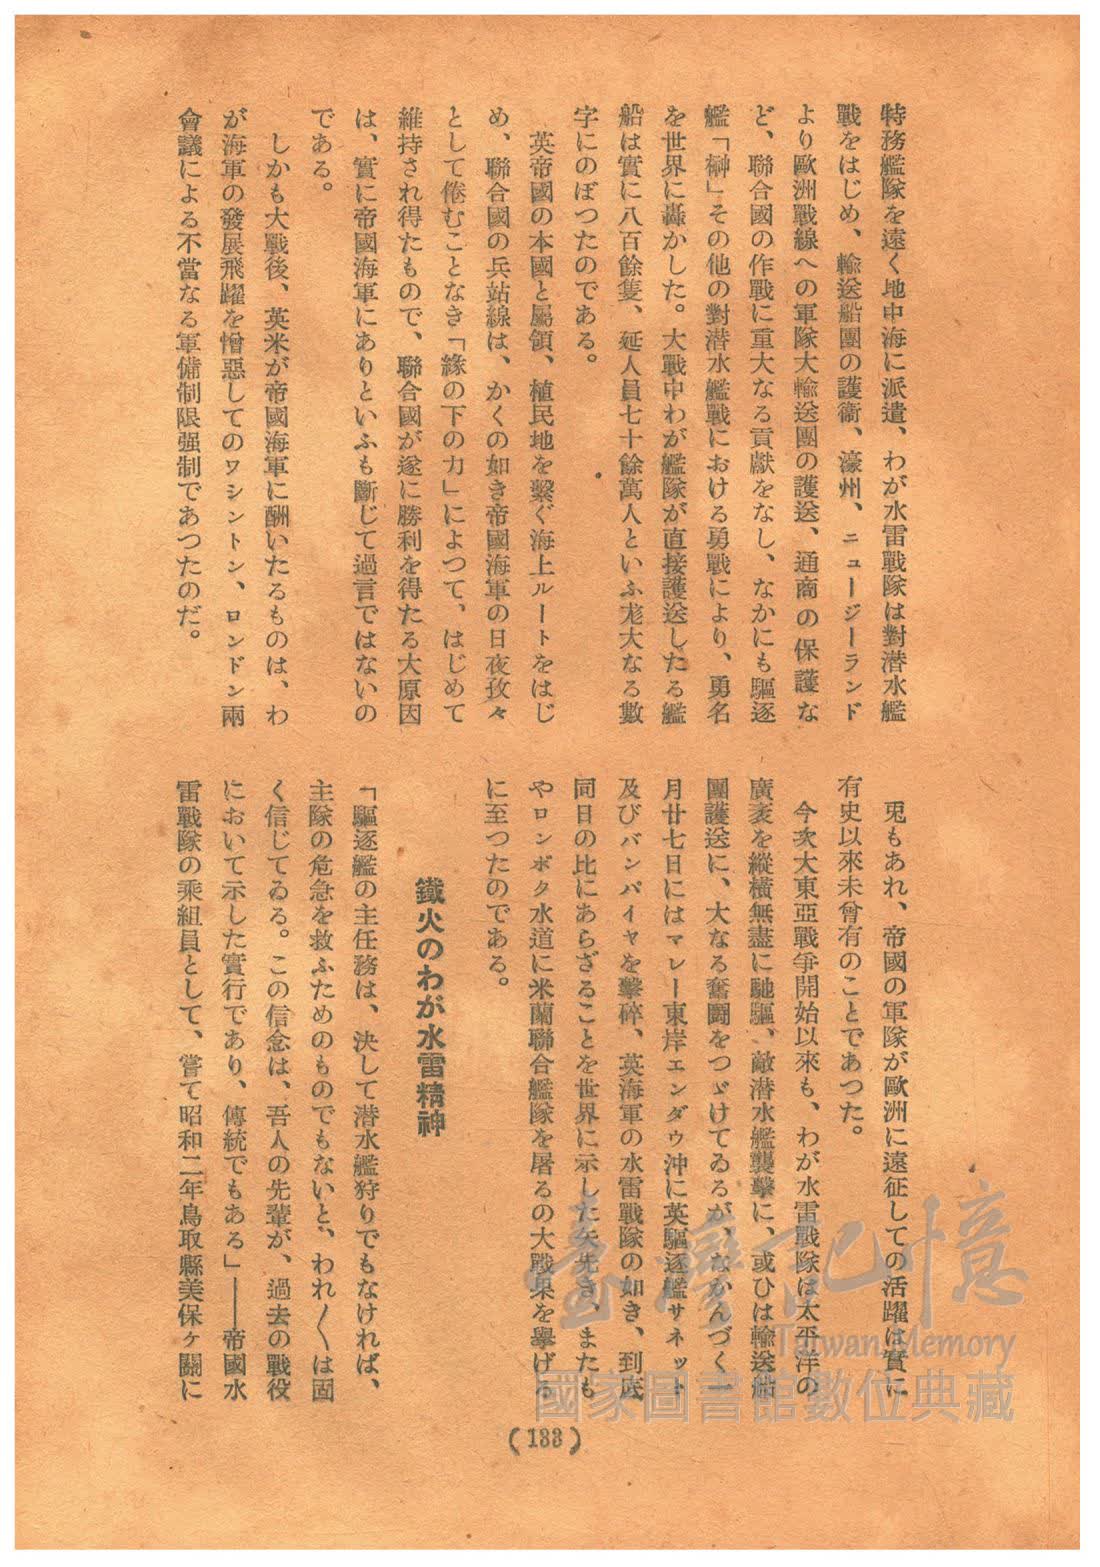 特務艦隊を遠く地中海に派遣、わが水雷戰隊は對潜水艦
戰をはじめ、輸送船團の護衞、濠州、ニュージーランド
より歐洲戰線への軍隊大輸送團の護送、通商の保護な
ど、聯合國の作戰に重大なる貢獻をなし、なかにも驅逐
艦「榊」その他の對潜水艦戰における勇戰により、勇名
を世界に轟かした。大戰中わが艦隊が直接護送したる艦
船は實に八百餘隻、延人員七十餘萬人といふ尨大なる數
字にのぼつたのである。
英帝國の本國と屬領、植民地を繋ぐ海上ルートをはじ
め、聯合國の兵站線は、かくの如き帝國海軍の日夜孜々
として倦むことなき「緣の下の力」によつて、はじめて
維持され得たもので、聯合國が遂に勝利を得たる大原因
は、實に帝國海軍にありといふも斷じて過言ではないの
である。
しかも大戰後、英米が帝國海軍に酬いたるものは、わ
が海軍の發展飛躍を憎惡してのワシントン、ロンドン兩
會議による不當なる軍備制限强制であつたのだ。
兎もあれ、帝國の軍隊が歐洲に遠征しての活躍は實に
有史以來未曾有のことであつた。
今次大東亞戰爭開始以來も、わが水雷戰隊は太平洋の
廣袤を縱橫無盡に馳驅、敵潜水艦襲擊に、或ひは輸送船
團護送に、大なる奮鬪をつゞけてゐるが、なかんづく一
月廿七日にはマレー東岸エンダゥ沖に英驅逐艦サネット
及びバンパイヤを擊碎、英海軍の水雷戰隊の如き、到底
同日の比にあらざることを世界に示した矢先き、またも
やロンボク水道に米蘭聯合艦隊を屠るの大戰果を擧げる
に至つたのである。
鐵火のわが水雷精神
「驅逐艦の主任務は、決して潜水艦狩りでもなければ、
主隊の危急を救ふためのものでもないと、われ〱は固
く信じてゐる。この信念は、吾人の先輩が、過去の戰役
において示した實行であり、傳統でもある」――帝國水
雷戰隊の乘組員として、嘗て昭和二年鳥取縣美保ヶ關に
(133)
臺灣記憶
Taiwan Memory
國家圖書館數位典藏